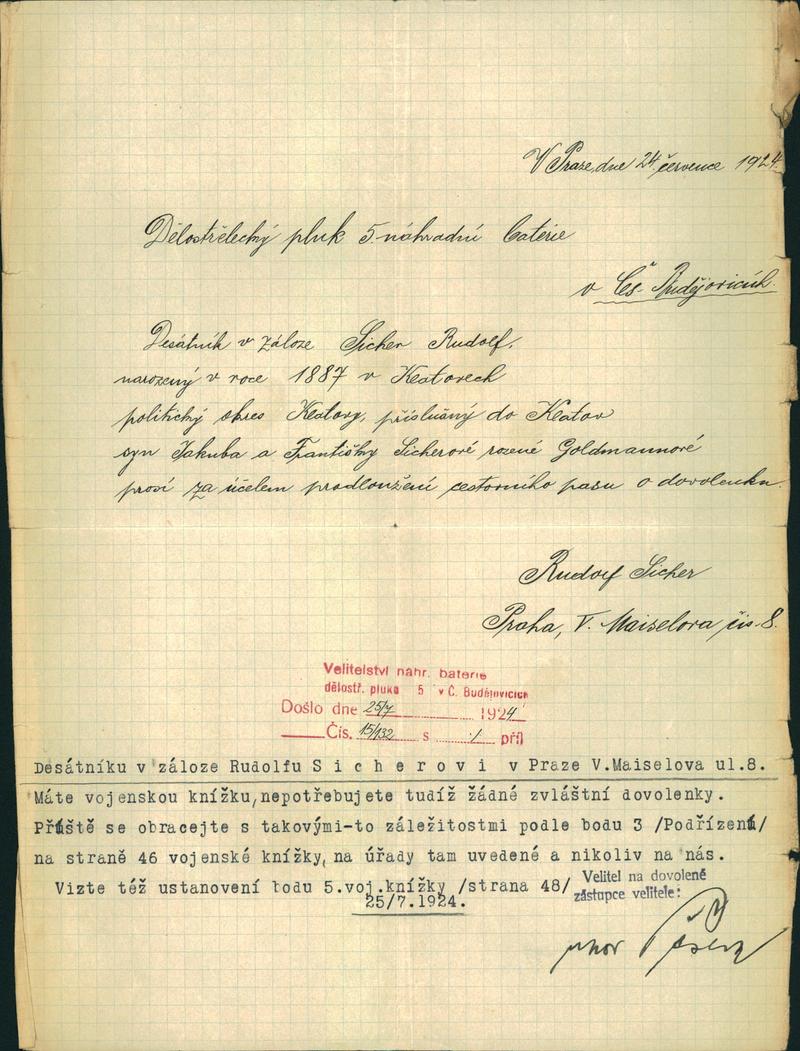 V Praze, dne 24. července 1924.
Dělostřelecký pluk 5 náhradní baterie
v Čes. Budějovicích.
Desátník v záloze Sicher Rudolf,
narozený v roce 1887 v Klatovech
politický okres Klatovy, příslušný do Klatov
syn Jakuba a Františky Sicherové rozené Goldmannové
prosí za účelem prodloužení cestovního pasu o dovolenku.
Rudolf Sicher
Praha, V. Maiselova čis. 8.
Velitelství náhr. baterie
dělostř. pluku 5 v Č. Budějovicích
Došlo dne 25/7 1924
Čís. 15/132 s 1 příl
Desátníku v záloze Rudolfu Sicherovi v Praze V.Maiselova ul.8.
Máte vojenskou knížku, nepotřebujete tudíž žádné zvláštní dovolenky.
Příště se obracejte s takovými-to záležitostmi podle bodu 3 /Podřízení/
na straně 46 vojenské knížky, na úřady tam uvedené a nikoliv na nás.
Vizte též ustanovení bodu 5.voj.knížky /strana 48/
25/7.1924.
Velitel na dovolené
zástupce velitele: